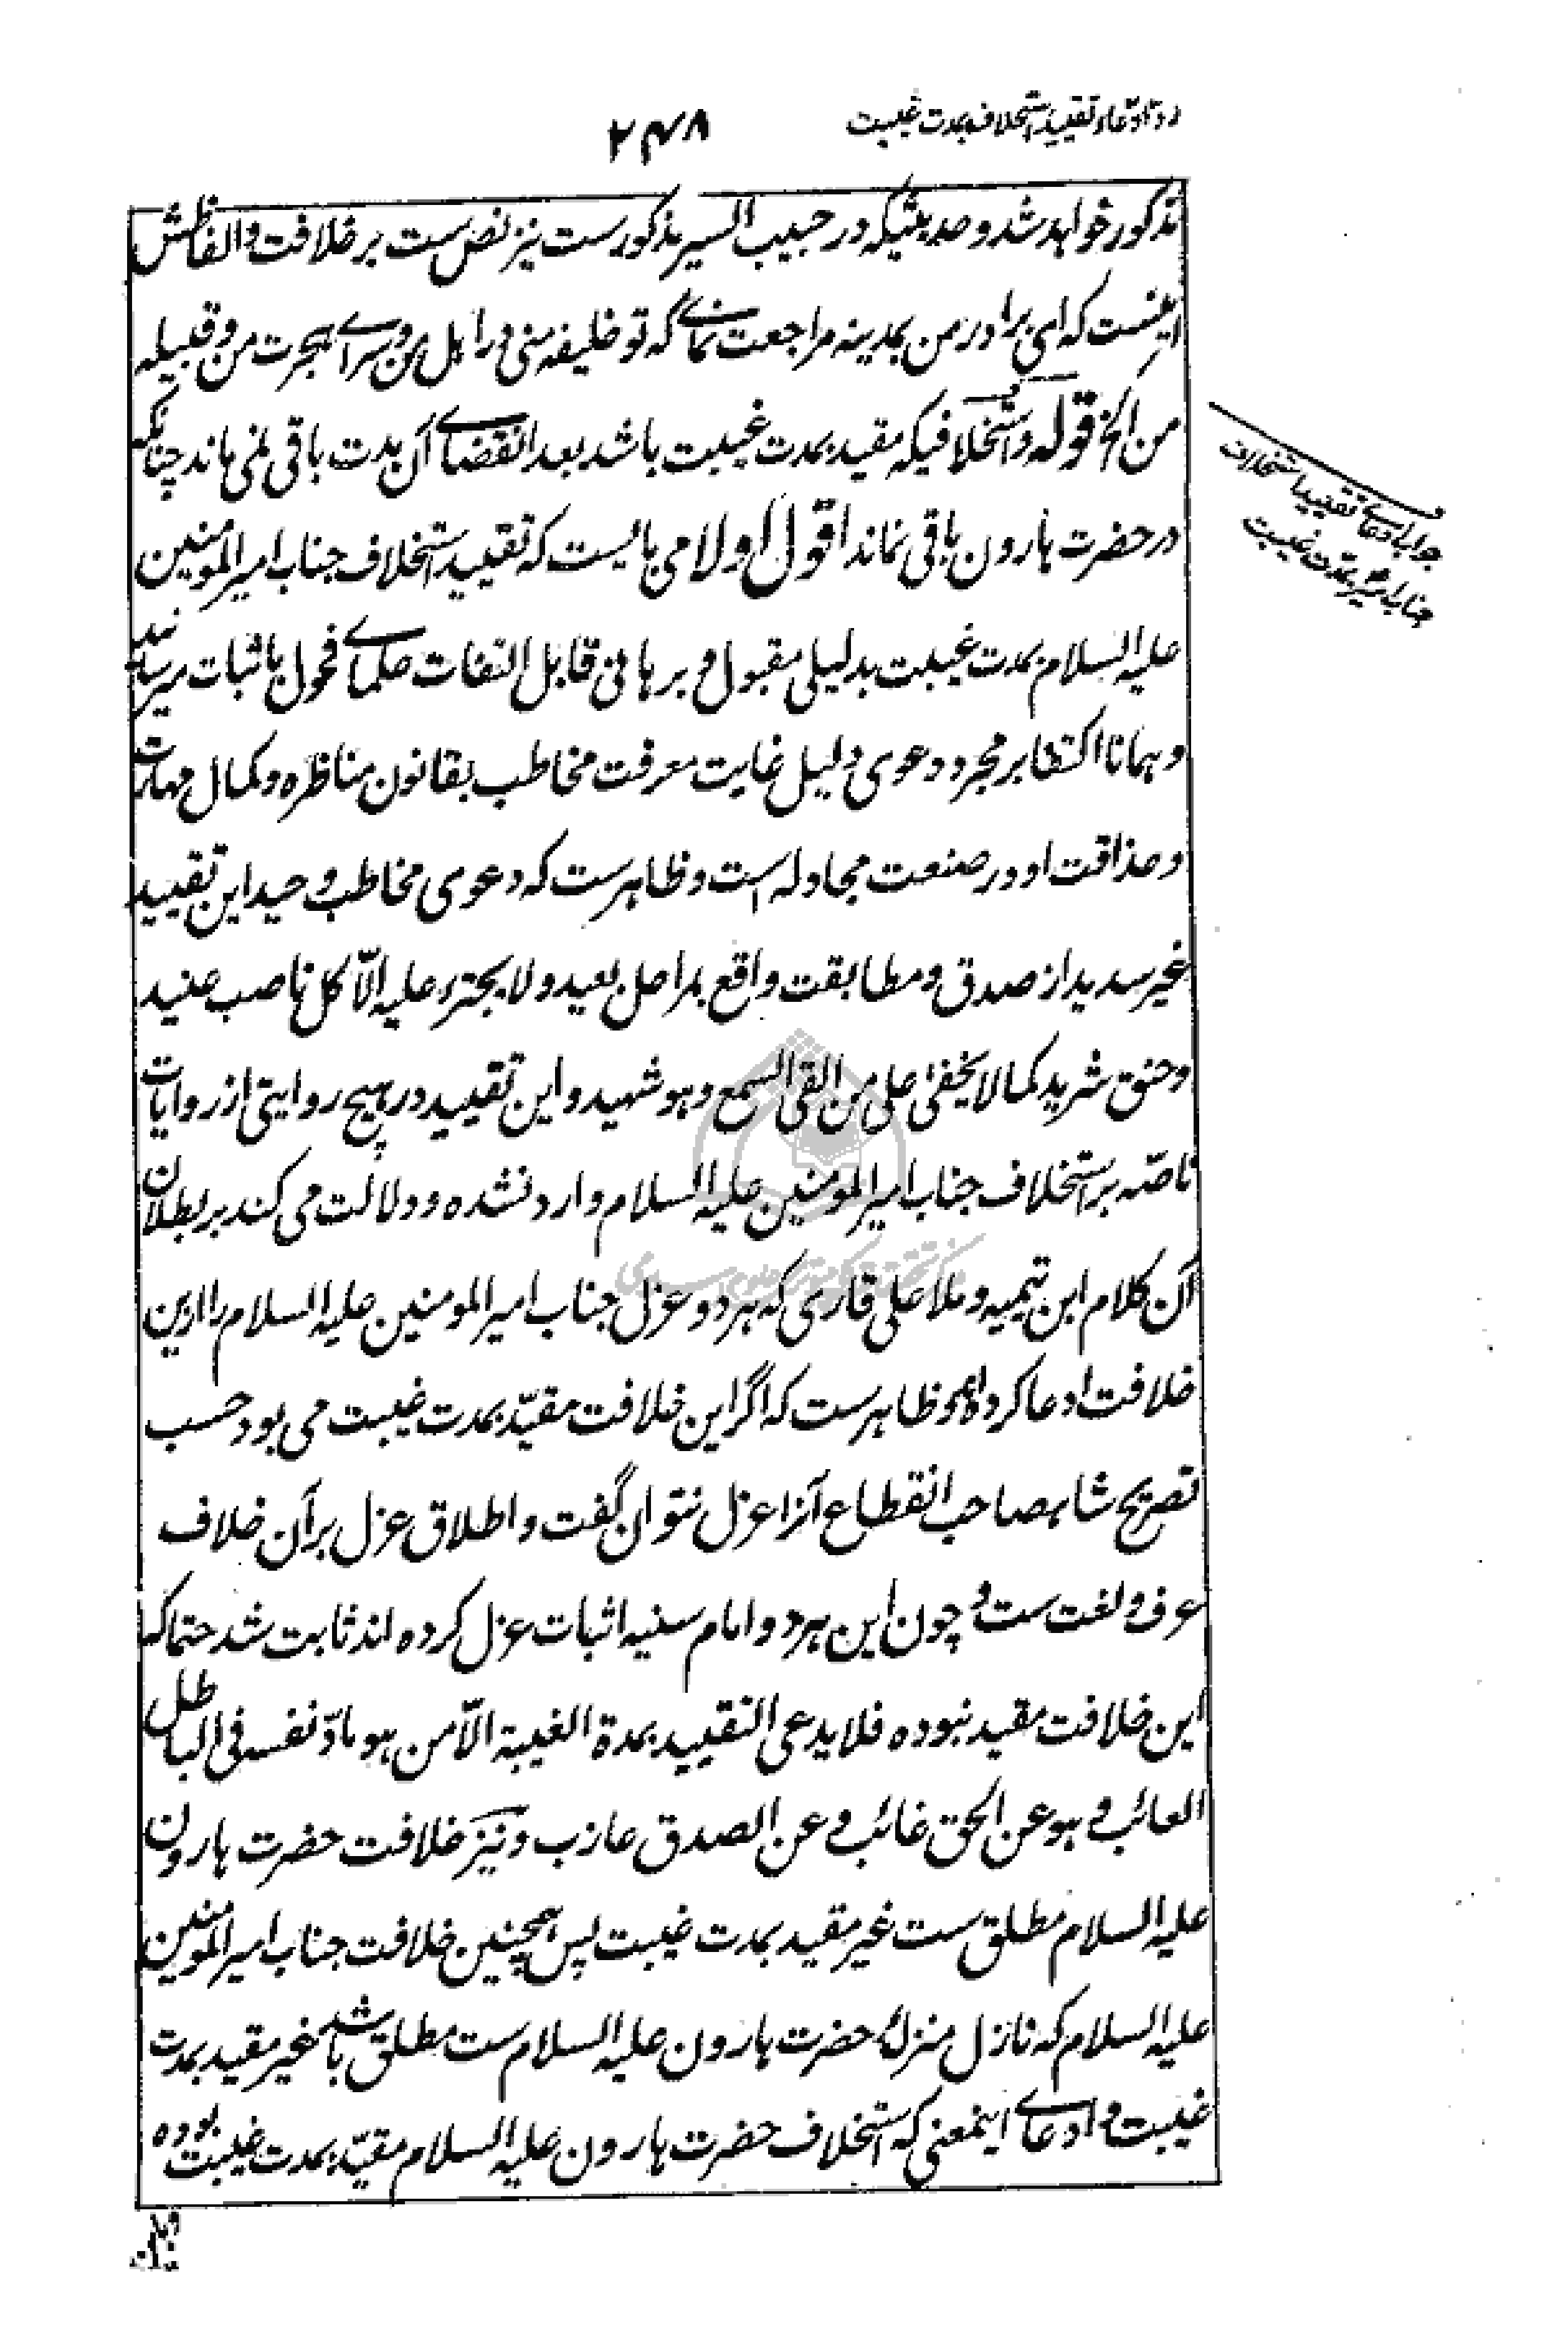 رد ادعاء تقیید استخلاف بمدت غیبت
۲۴۸
مذکور خواهد شد و حدیثیکه در حبیب السیر مذکورست نیز نص ست بر خلافت و الفاظش
اینست که ای برادر من بمدینه مراجعت نمای که تو خلیفه منی در اهل من و سرای هجرت من و قبیله
من الخ قوله و استخلافیکه مقید بمدت غیبت باشد بعد انقضای آن مدت باقی نمی ماند چنانکه
در حضرت هارون باقی نماند اقول اولا می بایست که تقیید استخلاف جناب امیر المومنین
علیه السلام بمدت غیبت بدلیلی مقبول و برهانی قابل التفات علمای فحول باثبات میرسانید
و همانا اکتفا بر مجرد دعوی دلیل غایت معرفت مخاطب بقانون مناظره و کمال مهارت
و حذاقت او در صنعت مجادله است و ظاهرست که دعوی مخاطب وحید این تقیید
غیر سدید از صدق و مطابقت واقع بمراحل بعید و لا یجترء علیه الّا کل ناصب عنید
و حنق شرید کما لا یخفی علی من القی السمع و هو شهید و این تقیید در هیچ روایتی از روایات
ناصّه بر استخلاف جناب امیر المومنین علیه السلام وارد نشده و دلالت می کند بر بطلان
آن کلام ابن تیمیه و ملا علی قاری که هر دو عزل جناب امیر المومنین علیه السلام را ازین
خلافت ادعا کرده‌اند و ظاهرست که اگر این خلافت مقیّد بمدت غیبت می بود حسب
تصریح شاهصاحب انقطاع آنرا عزل نتوان گفت و اطلاق عزل بر آن خلاف
عرف و لغت ست و چون این هر دو امام سنیه اثبات عزل کرده اند ثابت شد حتما که
این خلافت مقید نبوده فلا یدعی التقیید بمدة الغیبة الّا من هو مادّ نفسه فی الباطل
العائب و هو عن الحق غائب و عن الصدق عازب و نیز خلافت حضرت هارون
علیه السلام مطلق ست غیر مقید بمدت غیبت پس همچنین خلافت جناب امیر المومنین
علیه السلام که نازل منزلهٔ حضرت هارون علیه السلام ست مطلق باشد غیر مقید بمدت
غیبت و ادعای اینمعنی که استخلاف حضرت هارون علیه السلام مقیّد بمدت غیبت بوده
جواب ادعای تقیید استخلاف
جناب امیر بمدت غیبت